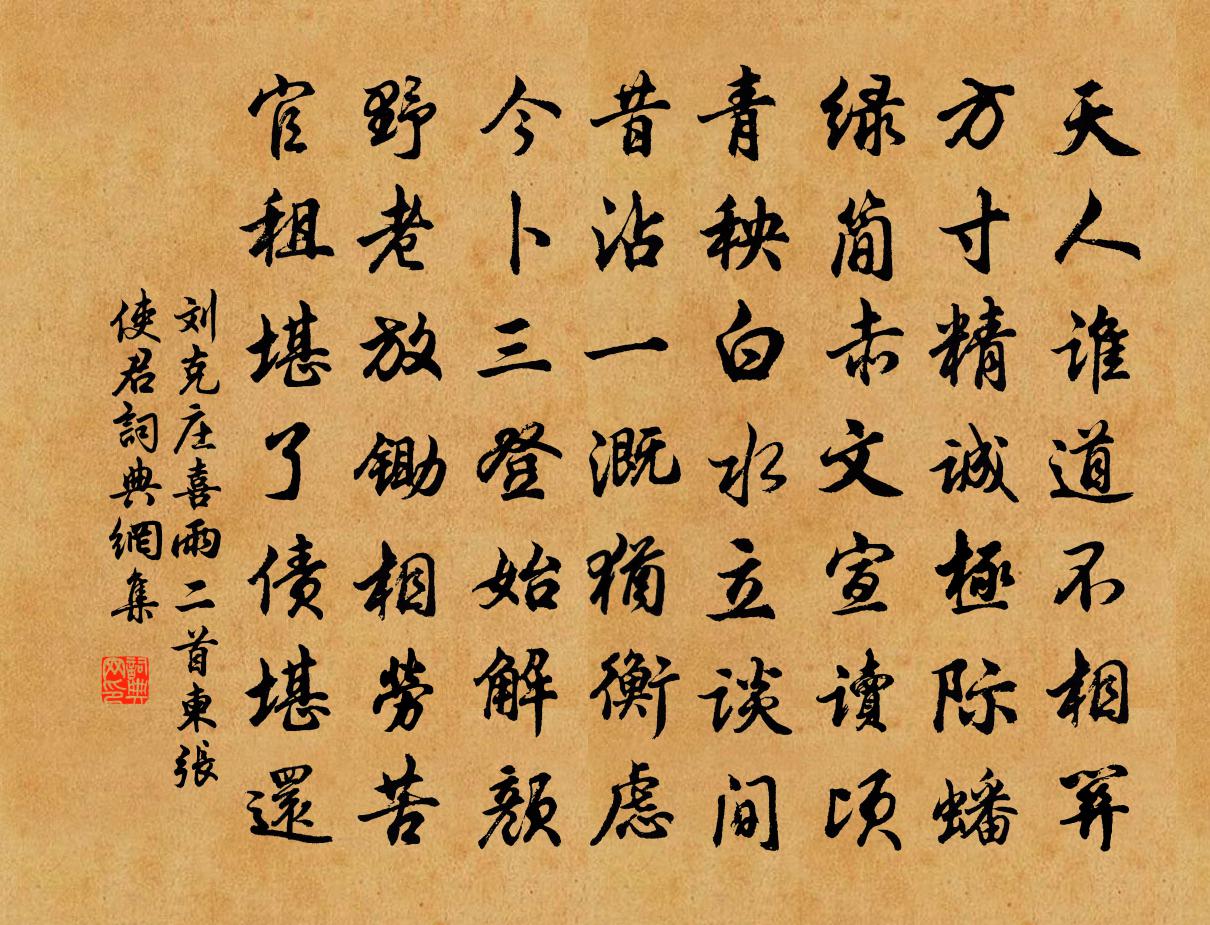 天人谁道不相關
方寸精诚極际蟠
绿简赤文宣讀顷
青秧白水立谈间
昔沾一溉猶衡虑
今卜三登始解颜
野老放锄相劳苦
官租堪了债堪還
刘克庄喜雨二首東張
使君詞典網集
詞典网印